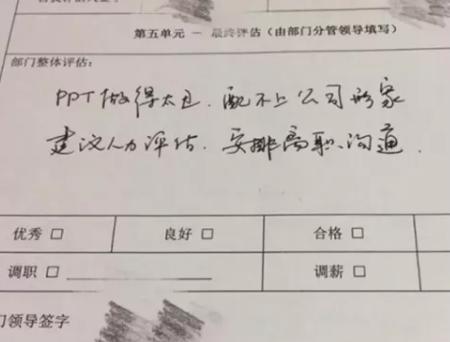 第五单元 — 最终评估（由部门分管领导填写）
部门整体评估：
PPT做得太丑，配不上公司形象
建议人力评估，安排离职沟通．
优秀 □ 良好 □ 合格 □
调职 □ 调薪 □
门领导签字